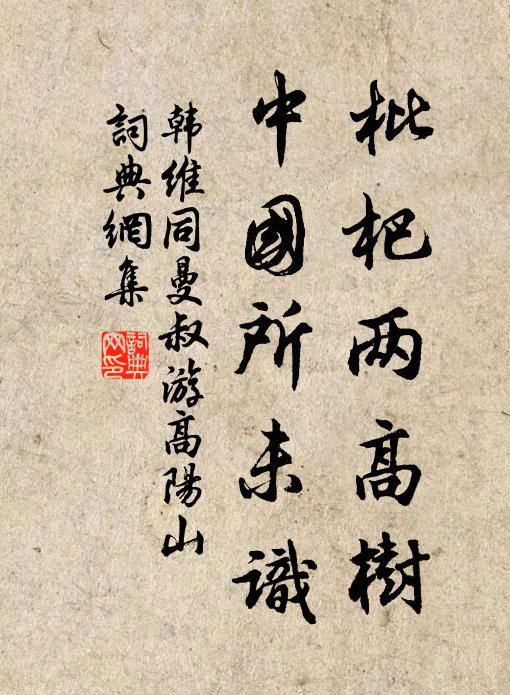 枇杷两高樹
中國所未識
韩維同曼叔游高陽山
詞典網集
詞典網印